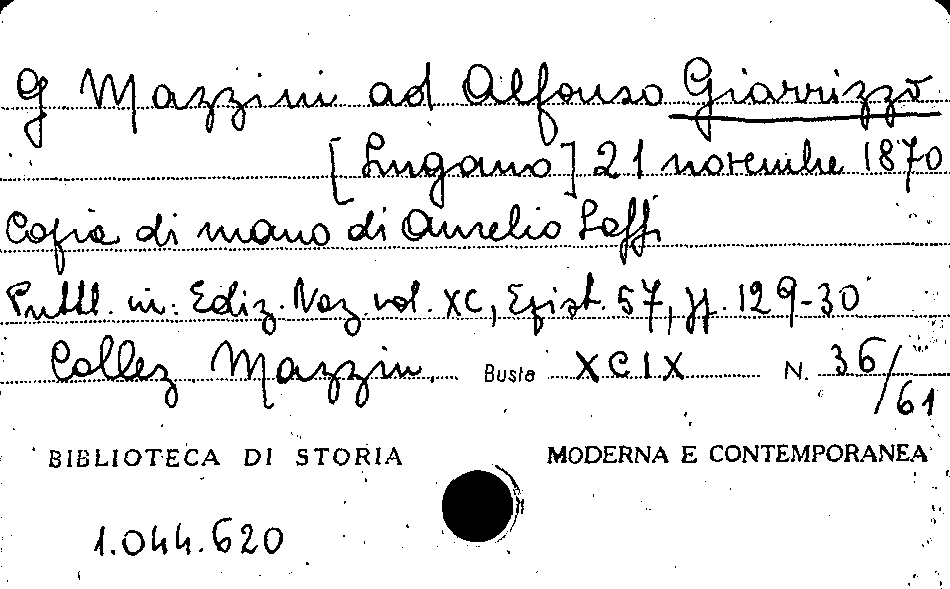 G Mazzini ad Alfonso Giarrizzo
[Lugano] 21 novembre 1870
Copia di mano di Aurelio Saffi
Pubbl. in: Ediz. Naz. vol. XC, Epist. 57, pp. 129-30
Collez Mazzini Busta XCIX N. 36/61
BIBLIOTECA DI STORIA MODERNA E CONTEMPORANEA
1.044.620